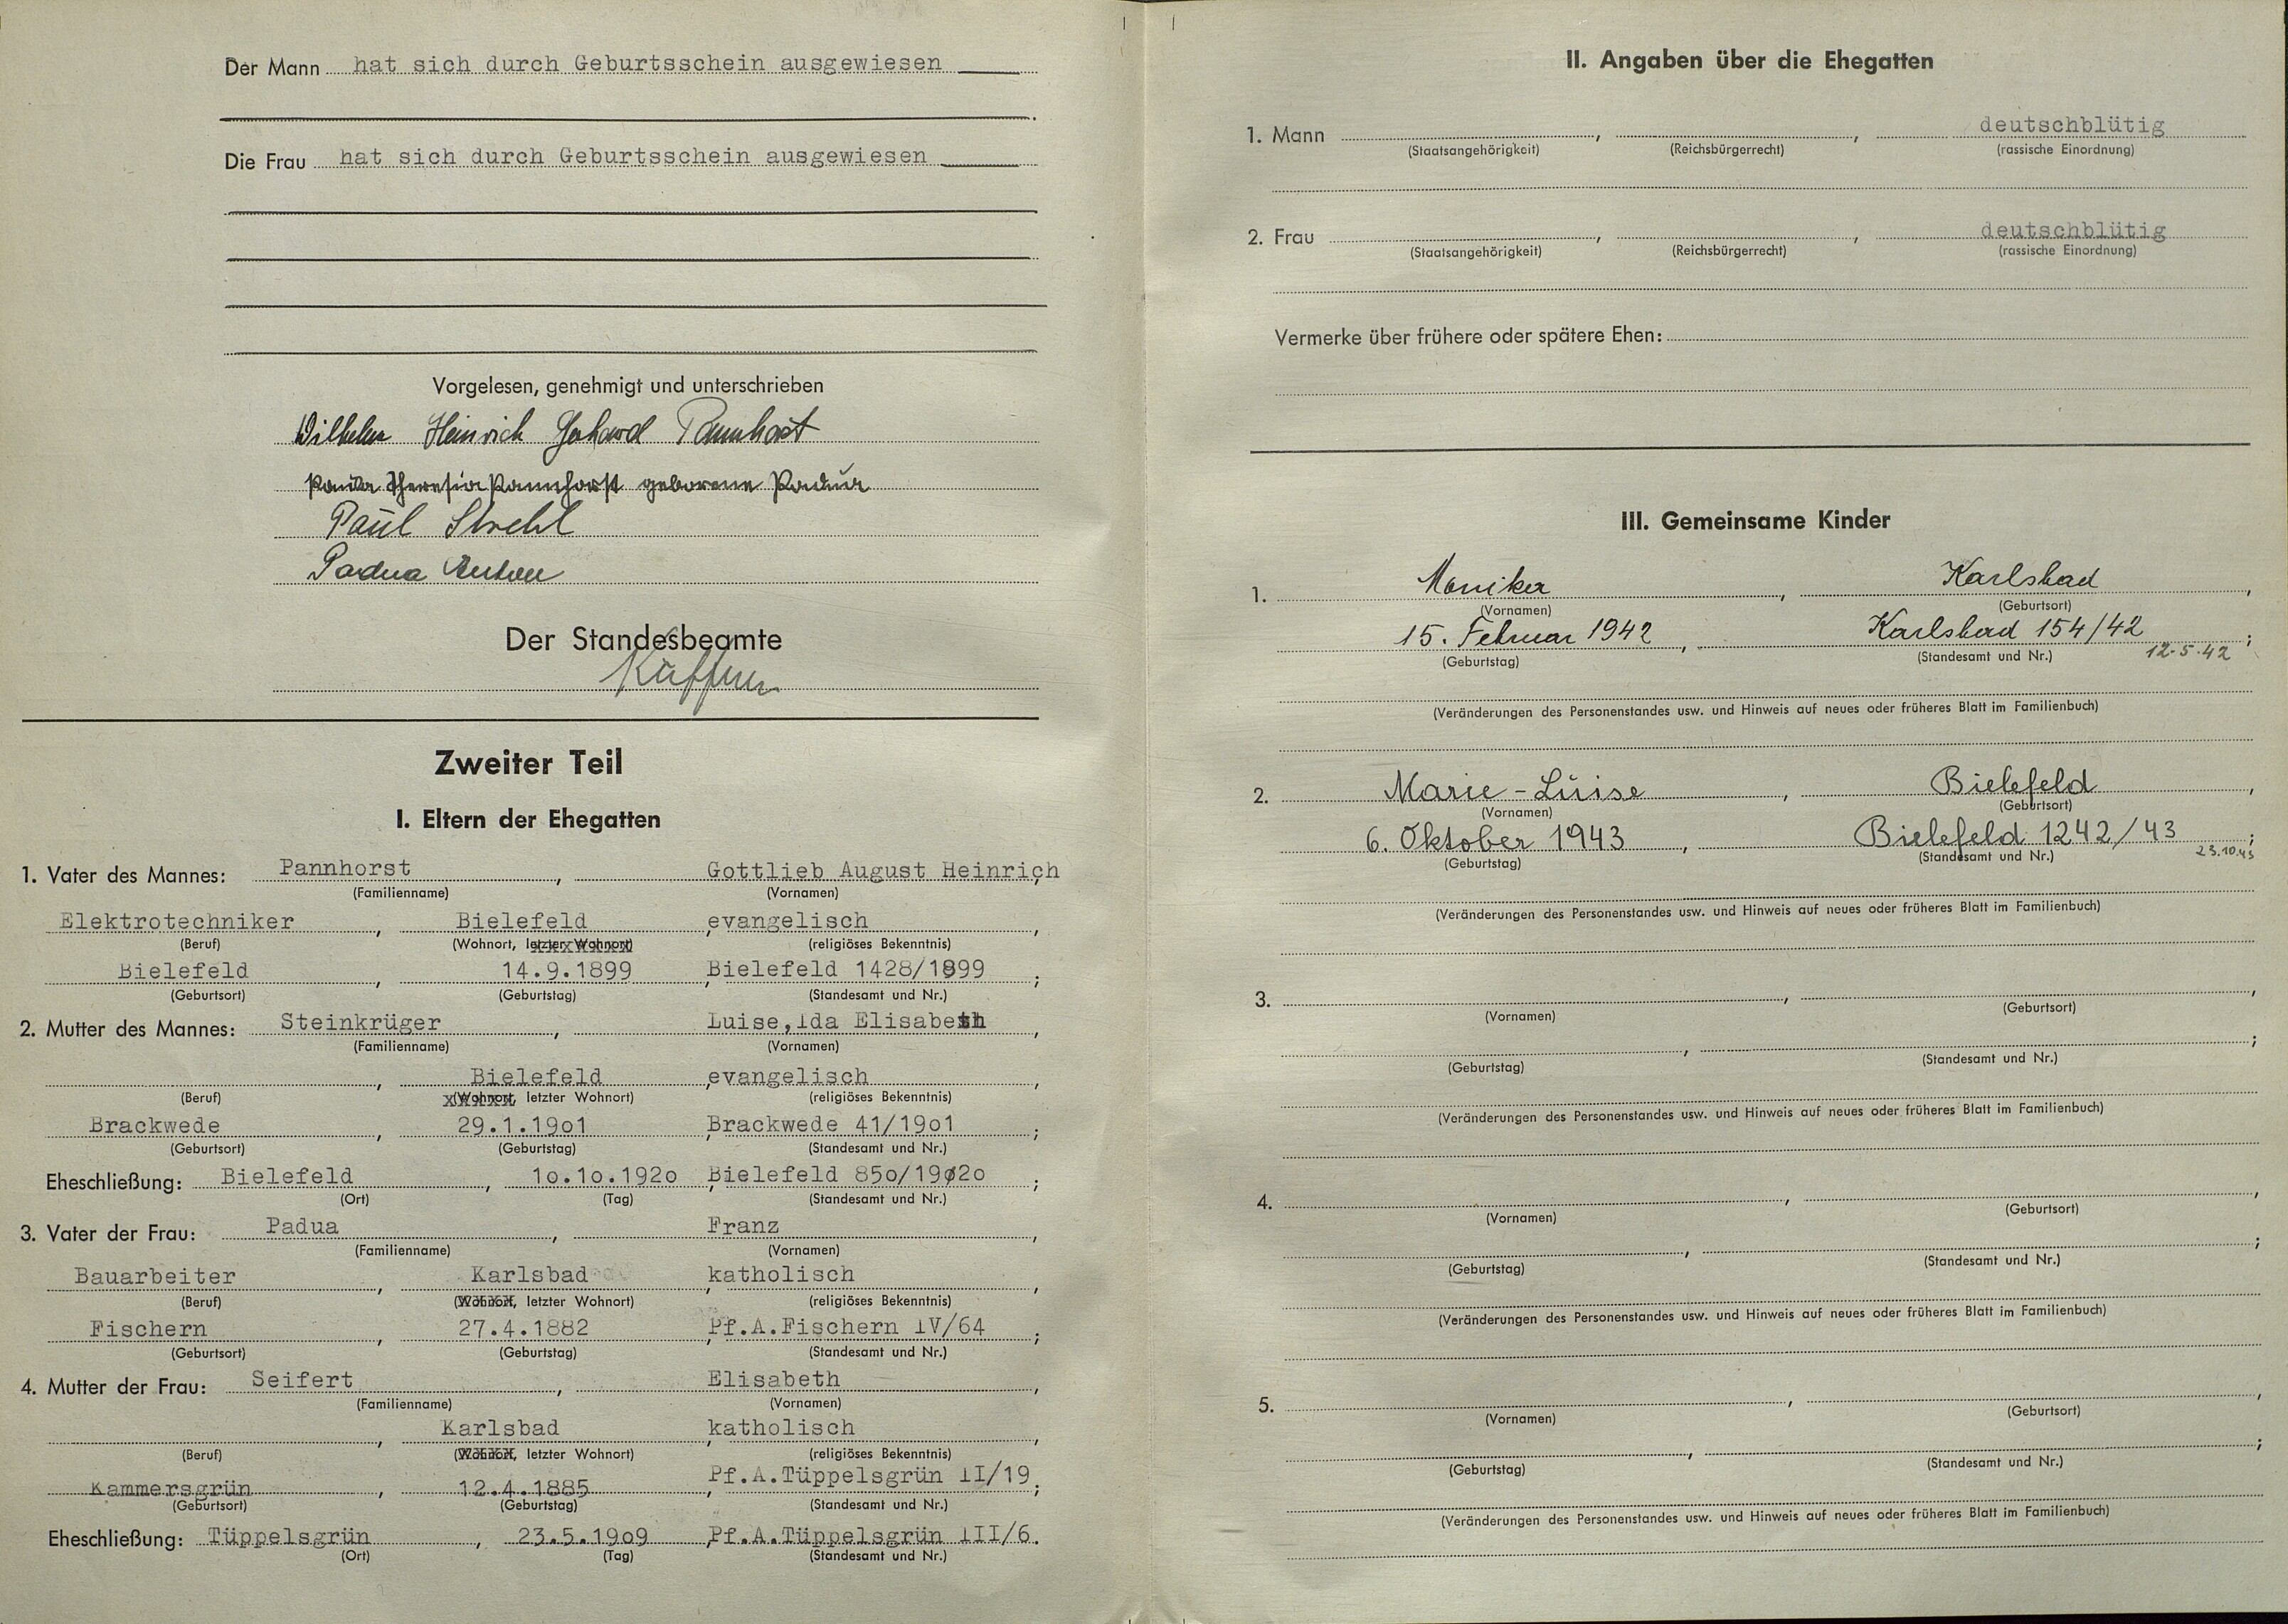 Der Mann hat sich durch Geburtsschein ausgewiesen
Die Frau hat sich durch Geburtsschein ausgewiesen
Vorgelesen, genehmigt und unterschrieben
Wilhelm Heinrich Gerhard Pannhorst
Paula Theresia Pannhorst geborene Padua
Paul Strehl
Padua Anton
Der Standesbeamte
Zweiter Teil
I. Eltern der Ehegatten
1. Vater des Mannes: Pannhorst, Gottlieb August Heinrich,
(Familienname) (Vornamen)
Elektrotechniker, Bielefeld, evangelisch,
(Beruf) (Wohnort, letzter Wohnort) (religiöses Bekenntnis)
Bielefeld, 14.9.1899, Bielefeld 1428/1899;
(Geburtsort) (Geburtstag) (Standesamt und Nr.)
2. Mutter des Mannes: Steinkrüger, Luise,Ida Elisabeth,
(Familienname) (Vornamen)
, Bielefeld, evangelisch,
(Beruf) (Wohnort, letzter Wohnort) (religiöses Bekenntnis)
Brackwede, 29.1.19o1, Brackwede 41/19o1;
(Geburtsort) (Geburtstag) (Standesamt und Nr.)
Eheschließung: Bielefeld, 1o.1o.192o, Bielefeld 85o/192o;
(Ort) (Tag) (Standesamt und Nr.)
3. Vater der Frau: Padua, Franz,
(Familienname) (Vornamen)
Bauarbeiter, Karlsbad, katholisch,
(Beruf) (Wohnort, letzter Wohnort) (religiöses Bekenntnis)
Fischern, 27.4.1882, Pf.A.Fischern IV/64;
(Geburtsort) (Geburtstag) (Standesamt und Nr.)
4. Mutter der Frau: Seifert, Elisabeth,
(Familienname) (Vornamen)
, Karlsbad, katholisch,
(Beruf) (Wohnort, letzter Wohnort) (religiöses Bekenntnis)
Kammersgrün, 12.4.1885, Pf.A.Tüppelsgrün II/19;
(Geburtsort) (Geburtstag) (Standesamt und Nr.)
Eheschließung: Tüppelsgrün, 23.5.19o9, Pf.A.Tüppelsgrün III/6.
(Ort) (Tag) (Standesamt und Nr.)
II. Angaben über die Ehegatten
1. Mann , , deutschblütig
(Staatsangehörigkeit) (Reichsbürgerrecht) (rassische Einordnung)
2. Frau , , deutschblütig
(Staatsangehörigkeit) (Reichsbürgerrecht) (rassische Einordnung)
Vermerke über frühere oder spätere Ehen:
III. Gemeinsame Kinder
1. Monika, Karlsbad,
(Vornamen) (Geburtsort)
15. Februar 1942, Karlsbad 154/42;
(Geburtstag) (Standesamt und Nr.) 12.5.42
(Veränderungen des Personenstandes usw. und Hinweis auf neues oder früheres Blatt im Familienbuch)
2. Marie-Luise, Bielefeld,
(Vornamen) (Geburtsort)
6. Oktober 1943, Bielefeld 1242/43;
(Geburtstag) (Standesamt und Nr.) 23.10.43
(Veränderungen des Personenstandes usw. und Hinweis auf neues oder früheres Blatt im Familienbuch)
3. , ,
(Vornamen) (Geburtsort)
, ;
(Geburtstag) (Standesamt und Nr.)
(Veränderungen des Personenstandes usw. und Hinweis auf neues oder früheres Blatt im Familienbuch)
4. , ,
(Vornamen) (Geburtsort)
, ;
(Geburtstag) (Standesamt und Nr.)
(Veränderungen des Personenstandes usw. und Hinweis auf neues oder früheres Blatt im Familienbuch)
5. , ,
(Vornamen) (Geburtsort)
, ;
(Geburtstag) (Standesamt und Nr.)
(Veränderungen des Personenstandes usw. und Hinweis auf neues oder früheres Blatt im Familienbuch)